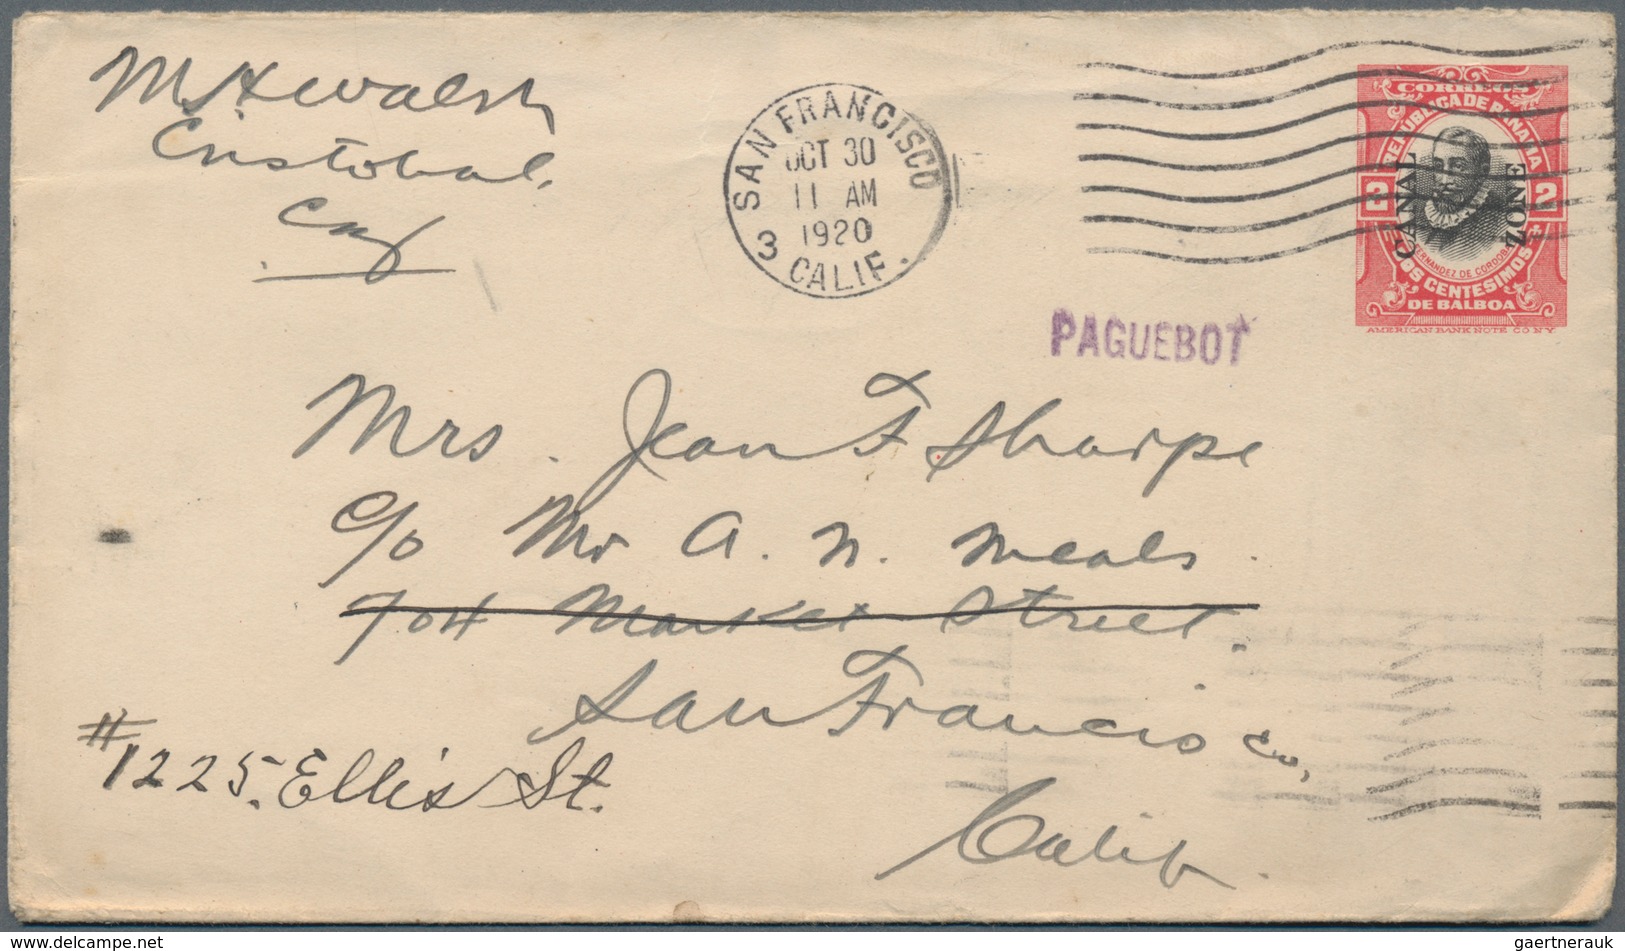 M H Walsh
Cristobal.
C.Z.
SAN FRANCISCO
OCT 30
11 AM
1920
3 CALIF.
CORREOS
REPÚBLICA DE PANAMA
CANAL ZONE
2 2
FERNANDEZ DE CORDOBA
DOS CENTESIMOS
DE BALBOA
AMERICAN BANK NOTE CO NY
PAGUEBOT
Mrs. Jean F Sharpe
c/o Mr A. N. Meals.
704 Market Street.
San Francisco,
#1225. Ellis St.
Calif.
delcampe.net
gaertnerauk